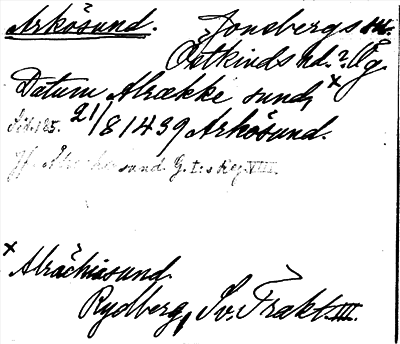 Arkösund. Jonsbergs sn.
Östkinds hd. Ög.
Datum Alrække sund, x
Sid. 185. 21/8 1439 Arkösund.
Jf. sund. G. I:s Reg. VIII.
x Alrackiasund
Rydberg, Sv. Trakt. III.